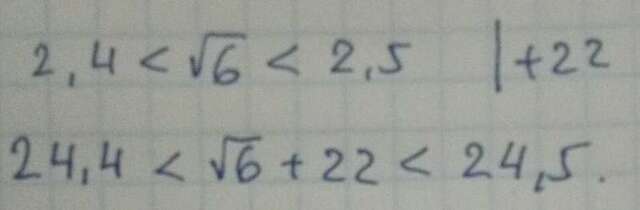 2,4 < √6 < 2,5 |+22
24,4 < √6 + 22 < 24,5.